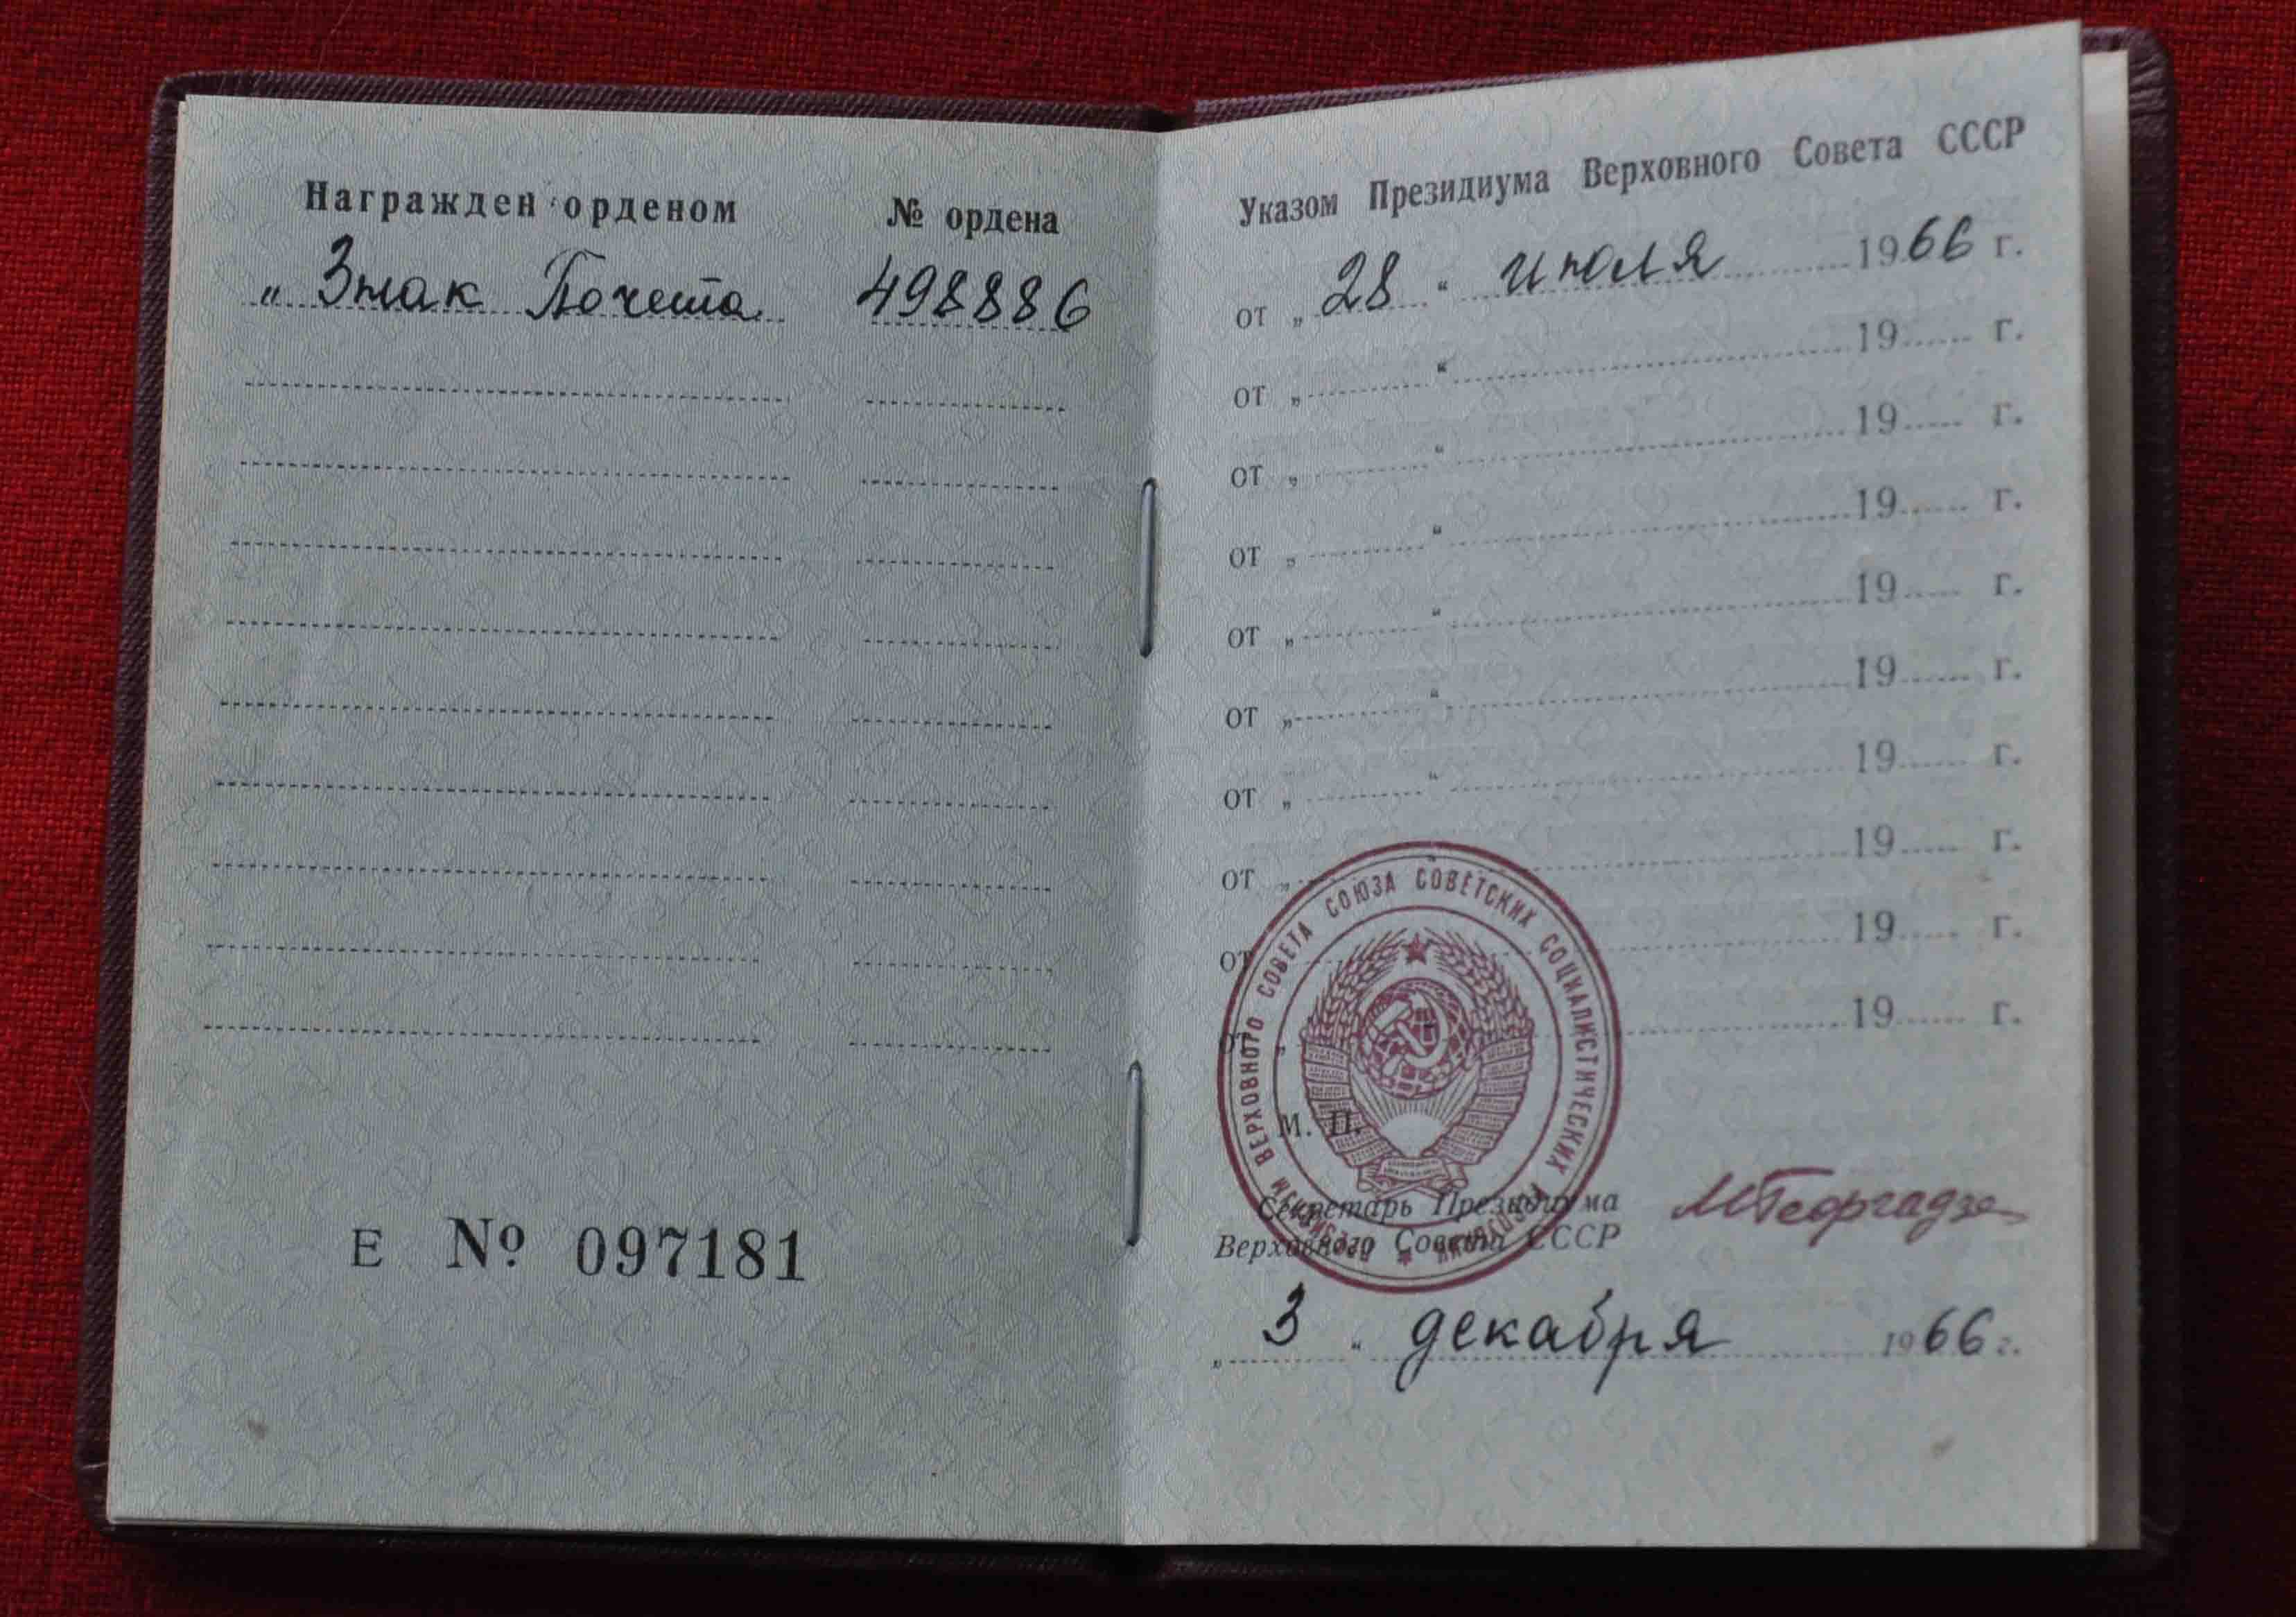 Награжден орденом № ордена
„ Знак Почета 498886
Е № 097181
Указом Президиума Верховного Совета СССР
от „ 28 “ июля 1966 г.
от „ “ 19 г.
от „ “ 19 г.
от „ “ 19 г.
от „ “ 19 г.
от „ “ 19 г.
от „ “ 19 г.
от „ 19 г.
от 19 г.
от „ 19 г.
ПРЕЗИДИУМ ВЕРХОВНОГО СОВЕТА СОЮЗА СОВЕТСКИХ СОЦИАЛИСТИЧЕСКИХ РЕСПУБЛИК
М. П.
Секретарь Президиума
Верховного Совета СССР
МГеоргадзе
„ 3 “ декабря 1966 г.